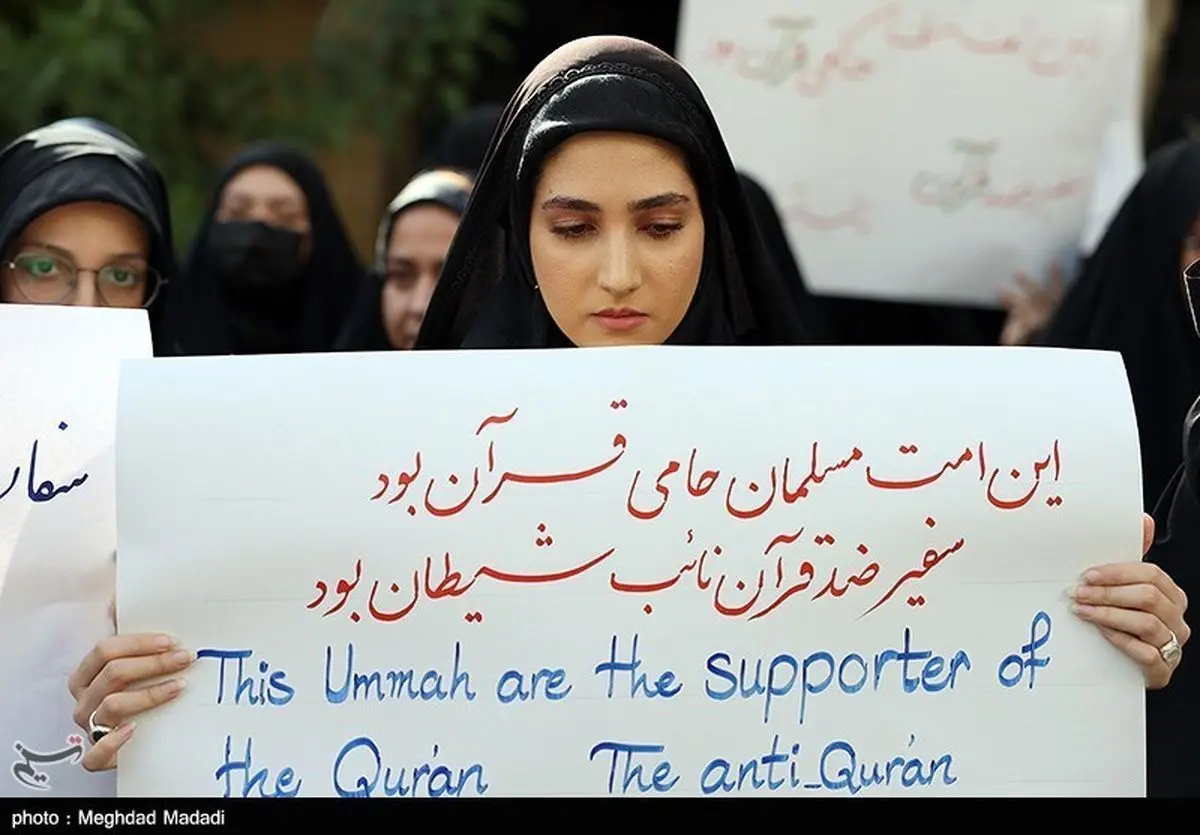 این امت مسلمان حامی قرآن بود
سفیر ضد قرآن نائب شیطان بود
This Ummah are the supporter of
the Qur'an The anti_Qur'an
سفار
قرآن
قرآن
تسنیم
photo : Meghdad Madadi